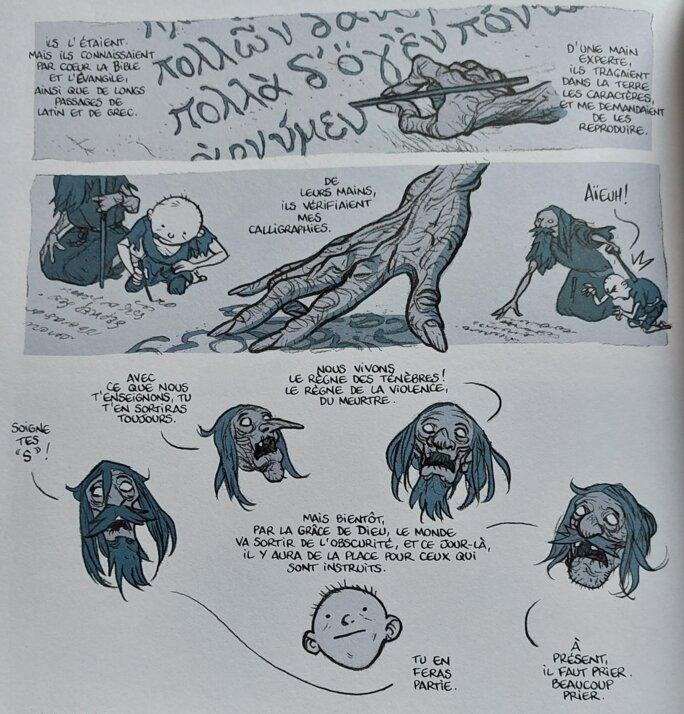 ILS L'ÉTAIENT.
MAIS ILS CONNAISSAIENT
PAR COEUR LA BIBLE
ET L'ÉVANGILE,
AINSI QUE DE LONGS
PASSAGES DE
LATIN ET DE GREC.
πολλῶν
πολλὰ δ' ὅ γ' ἐν πόντῳ
ἀρνύμεν
D'UNE MAIN
EXPERTE,
ILS TRAÇAIENT
DANS LA TERRE
LES CARACTÈRES,
ET ME DEMANDAIENT
DE LES
REPRODUIRE.
DE
LEURS MAINS,
ILS VÉRIFIAIENT
MES
CALLIGRAPHIES.
AÏEUH!
AVEC
CE QUE NOUS
T'ENSEIGNONS, TU
T'EN SORTIRAS
TOUJOURS.
NOUS VIVONS
LE RÈGNE DES TÉNÈBRES!
LE RÈGNE DE LA VIOLENCE,
DU MEURTRE.
SOIGNE
TES
"S"!
MAIS BIENTÔT,
PAR LA GRÂCE DE DIEU, LE MONDE
VA SORTIR DE L'OBSCURITÉ, ET CE JOUR-LÀ,
IL Y AURA DE LA PLACE POUR CEUX QUI
SONT INSTRUITS.
TU EN
FERAS
PARTIE.
À
PRÉSENT,
IL FAUT PRIER.
BEAUCOUP
PRIER.